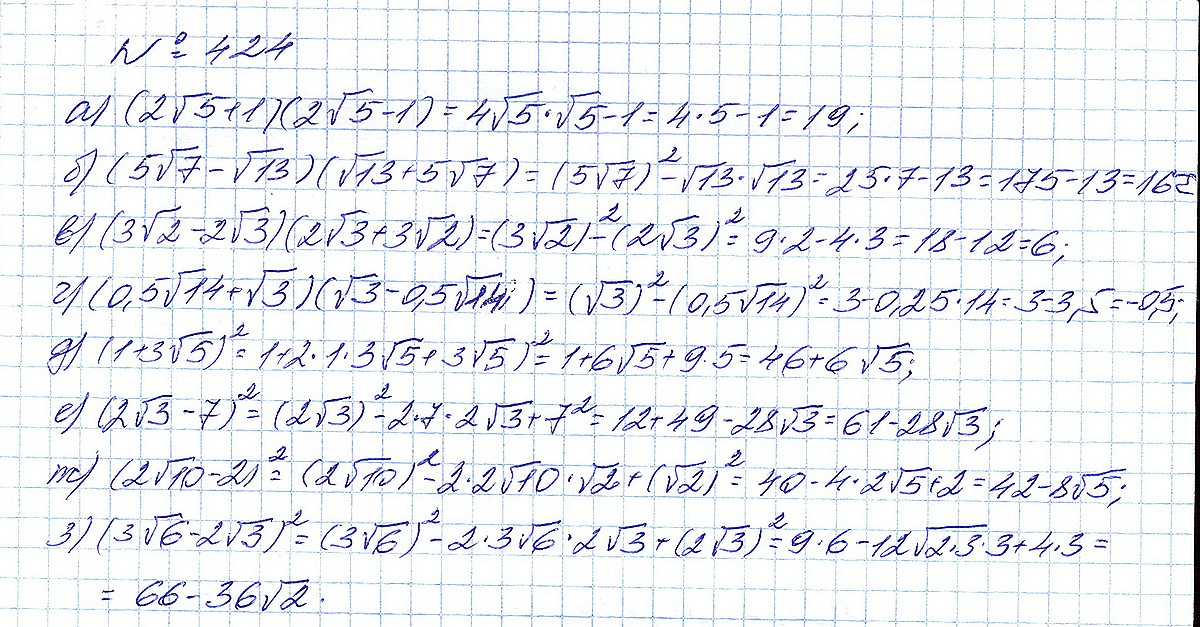 № 424
а) (2√5+1)(2√5-1) = 4√5·√5-1 = 4·5-1 = 19;
б) (5√7-√13)(√13+5√7) = (5√7)²-√13·√13 = 25·7-13 = 175-13 = 162
в) (3√2-2√3)(2√3+3√2) = (3√2)²-(2√3)² = 9·2-4·3 = 18-12 = 6;
г) (0,5√14+√3)(√3-0,5√14) = (√3)²-(0,5√14)² = 3-0,25·14 = 3-3,5 = -0,5;
д) (1+3√5)² = 1+2·1·3√5+3√5)² = 1+6√5+9·5 = 46+6√5;
е) (2√3-7)² = (2√3)²-2·7·2√3+7² = 12+49-28√3 = 61-28√3;
ж) (2√10-2)² = (2√10)²-2·2√10·√2+(√2)² = 40-4·2√5+2 = 42-8√5;
з) (3√6-2√3)² = (3√6)²-2·3√6·2√3+(2√3)² = 9·6-12√2·3·3+4·3 =
= 66-36√2.